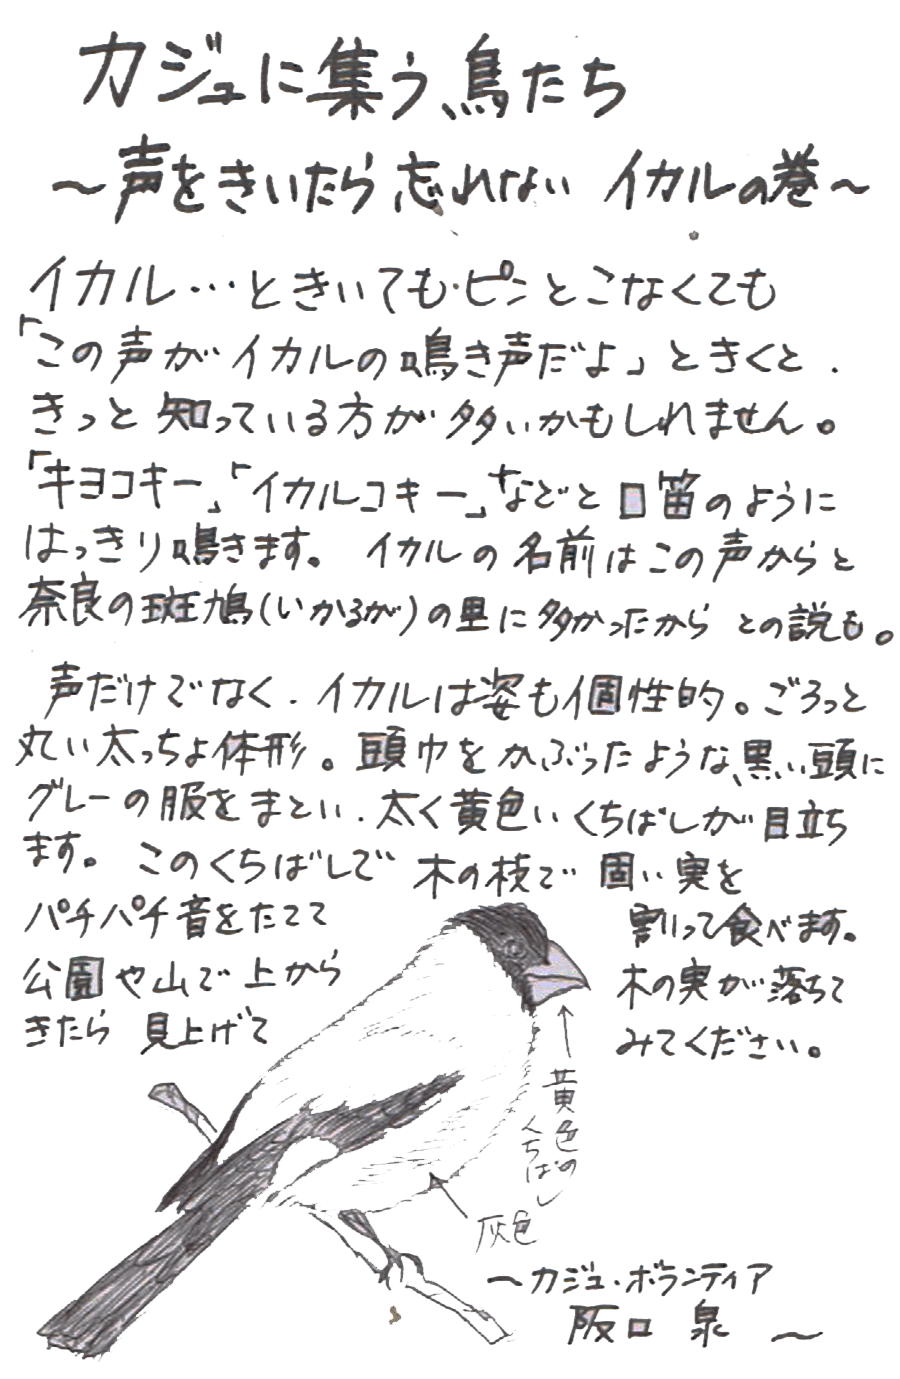 カジュに集う、鳥たち
〜声をきいたら忘れない イカルの巻〜
イカル…ときいても・ピンとこなくても
「この声がイカルの鳴き声だよ」ときくと、
きっと知っている方が多いかもしれません。
「キヨコキー」「イカルコキー」などと口笛のように
はっきり鳴きます。 イカルの名前はこの声からと
奈良の斑鳩(いかるが)の里に多かったからとの説も。
声だけでなく、イカルは姿も個性的。ごろっと
丸い太っちょ体形。頭巾をかぶったような、黒い頭に
グレーの服をまとい、太く黄色いくちばしが目立ち
ます。このくちばしで 木の枝で 固い実を
パチパチ音をたてて
割って食べます。
公園や山で上から
木の実が落ちて
きたら 見上げて
みてください。
黄色の
くちばし
灰色
〜カジュ・ボランティア
阪口 泉 〜